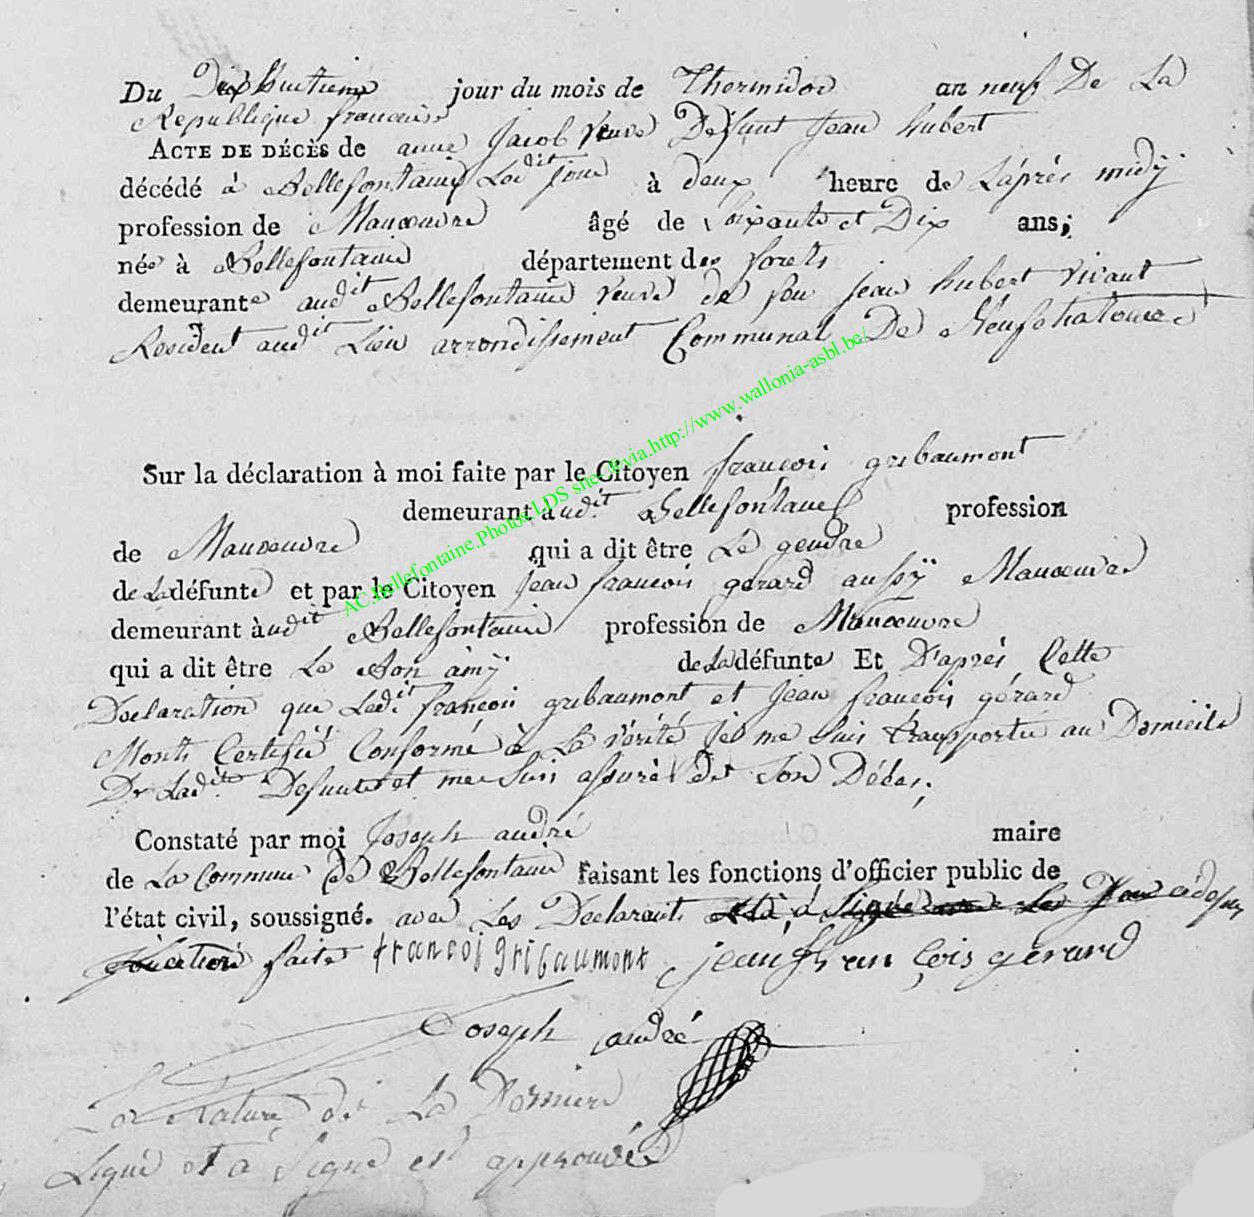 Du Dixhuitieme jour du mois de Thermidor an neuf De La
Republique francoise
ACTE DE DÉCÈS de anne Jacob veuve Defunt Jean hubert
décédé à Bellefontaine Ledit jour à deux heure de L'après midÿ
profession de Manœuvre âgé de Soixante et Dix ans;
née à Bellefontaine département des forets
demeurante audit Bellefontaine veuve de feu jean hubert vivant
Resident audit Lieu arrondissement Communal De Neufchateau
Sur la déclaration à moi faite par le Citoyen françois gribaumont
demeurant audit Bellefontaine profession
de Manœuvre qui a dit être Le gendre
de La défunte et par le Citoyen jean francois gerard aussÿ Manœuvre
demeurant àudit Bellefontaine profession de Manœuvre
qui a dit être Le Bon amÿ de La défunte Et D'après Cette
Declaration que Ledit françois gribaumont et jean françois gérard
Mont Certifié Conforme à La vérité je me suis transportée au Domicile
De Ladite Defunte et me suis assuré de son Décès;
Constaté par moi Joseph andré maire
de La Commune de Bellefontaine faisant les fonctions d'officier public de
l'état civil, soussigné. avec Les Declarants
faite francoi gribaumont jean fran çois gérard
Joseph andré
La Rature de La Derniere
Ligne et a Signe est approuvée
AC.Bellefontaine.Photos LDS site GF.via.http://www.wallonia-asbl.be/